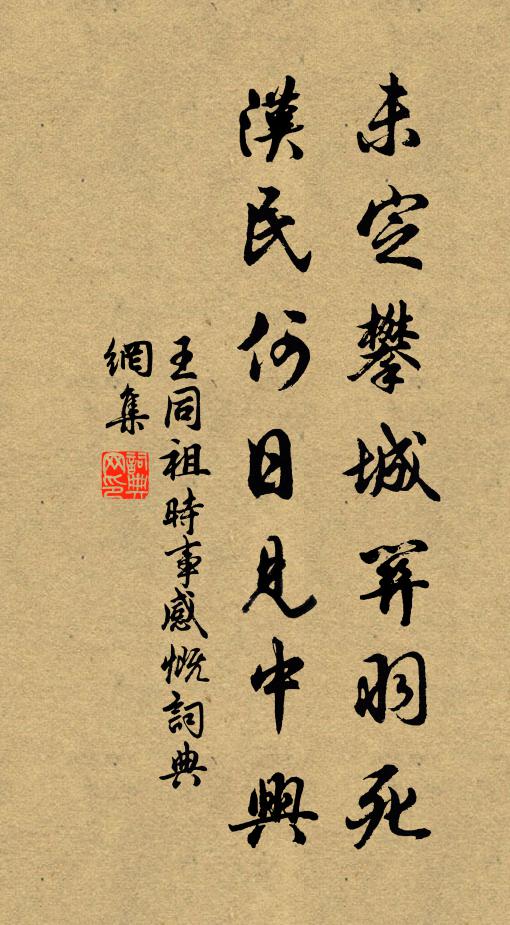 未定攀城關羽死
漢民何日見中興
王同祖時事感慨詞典
網集
詞典
网印